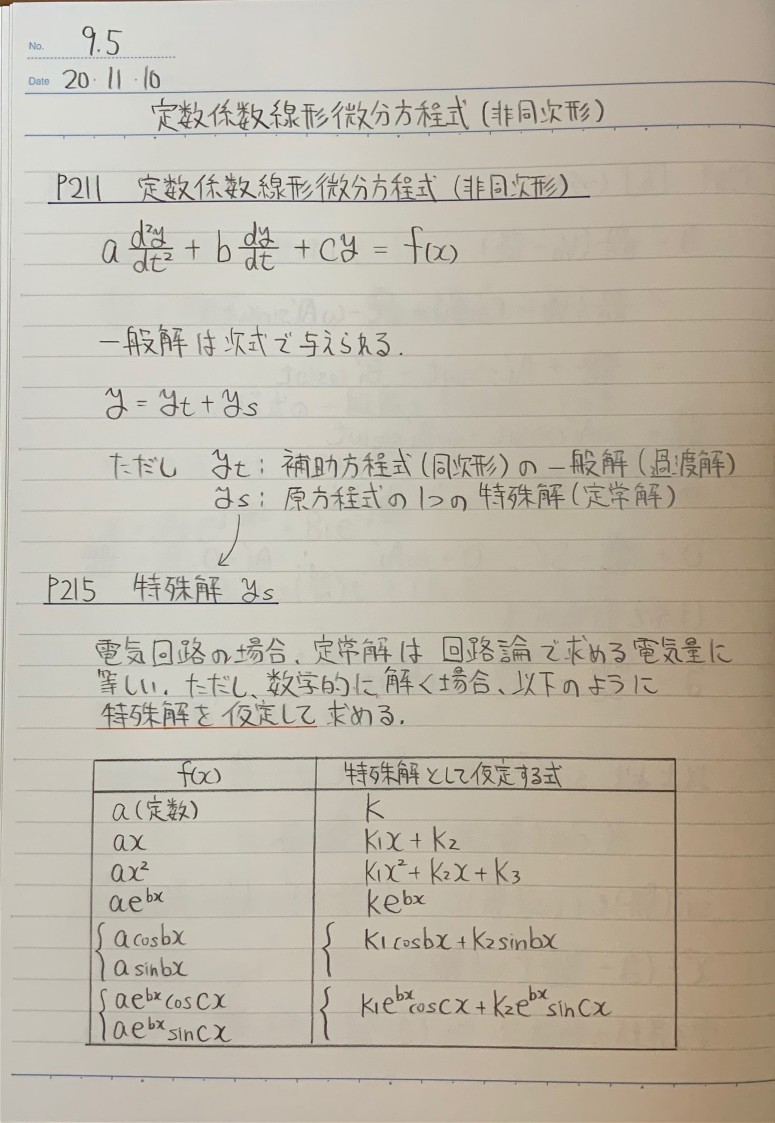 No. 9.5
Date 20・11・10
定数係数線形微分方程式(非同次形)
P211 定数係数線形微分方程式(非同次形)
a d²y/dt² + b dy/dt + cy = f(x)
一般解は次式で与えられる.
y = yt + ys
ただし yt : 補助方程式(同次形)の一般解(過渡解)
ys : 原方程式の1つの特殊解(定常解)
P215 特殊解 ys
電気回路の場合、定常解は 回路論で求める電気量に
等しい. ただし、数学的に解く場合、以下のように
特殊解を仮定して求める.
f(x) 特殊解として仮定する式
a(定数) K
ax K1x + K2
ax² K1x² + K2x + K3
ae^bx Ke^bx
{ a cosbx { K1 cosbx + K2 sinbx
a sinbx
{ ae^bx cosCx { K1e^bx cosCx + K2e^bx sinCx
ae^bx sinCx